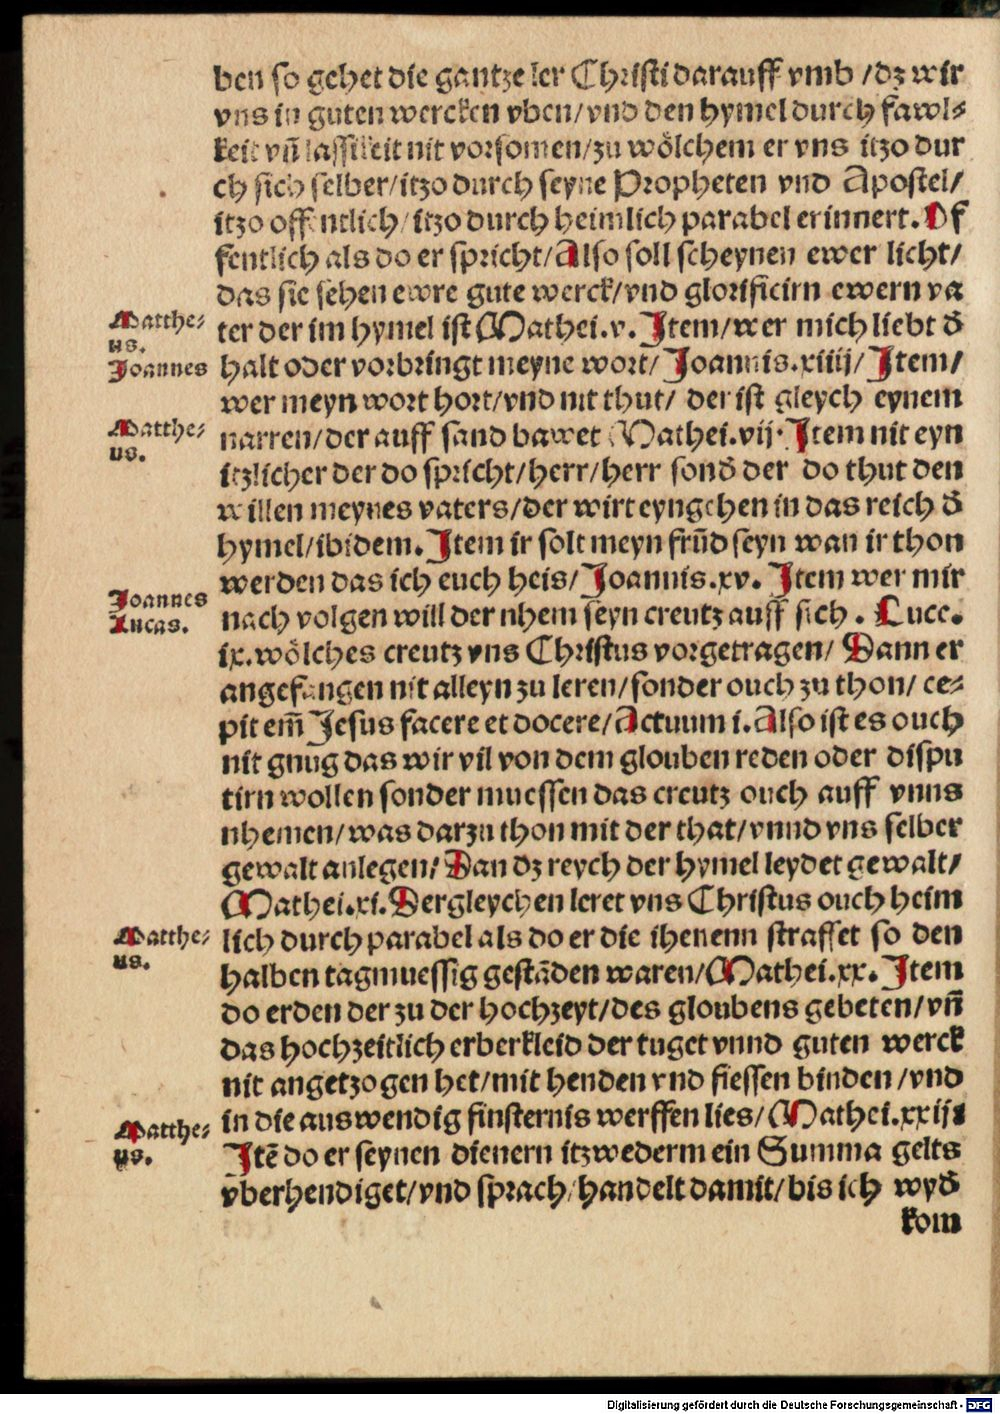 ben so gehet die gantze ler Christi darauff vmb /dz wir
vns in guten wercken vben/vnd den hymel durch fawl⸗
keit vn̄ lassikeit nit vorsomen/zu woͤlchem er vns itzo dur
ch sich selber/itzo durch seyne Propheten vnd Apostel/
itzo offentlich/itzo durch heimlich parabel erinnert. Of
fentlich als do er spricht/Also soll scheynen ewer licht/
das sie sehen ewre gute werck/vnd glorificirn ewern va
Matthe⸗
us.
ter der im hymel ist Mathei.v. Item/wer mich liebt ď
Joannes
halt oder vorbringt meyne wort/ Joannis.xiiij/ Item/
wer meyn wort hort/vnd nit thut/ der ist gleych eynem
Matthe⸗
us.
narren/der auff sand bawet Mathei.vij. Item nit eyn
itzlicher der do spricht/herr/herr sonď der do thut den
willen meynes vaters/der wirt eyngehen in das reich ď
hymel/ibidem. Item ir solt meyn frūd seyn wan ir thon
werden das ich euch heis/ Joannis.xv. Item wer mir
Joannes
Lucas.
nach volgen will der nhem seyn creutz auff sich . Luce.
ix.woͤlches creutz vns Christus vorgetragen/ Dann er
angefangen nit alleyn zu leren/sonder ouch zu thon/ ce⸗
pit em̄ Jesus facere et docere/Actuum i. Also ist es ouch
nit gnug das wir vil von dem glouben reden oder dispu
tirn wollen sonder muessen das creutz ouch auff vnns
nhemen/was darzu thon mit der that/vnnd vns selber
gewalt anlegen/ Dan dz reych der hymel leydet gewalt/
Mathei.xi. Dergleychen leret vns Christus ouch heim
Matthe⸗
us.
lich durch parabel als do er die ihenenn straffet so den
halben tag muessig gestāden waren/Mathei.xx. Item
do er den der zu der hochzeyt/des gloubens gebeten/vn̄
das hochzeitlich erberkleid der tuget vnnd guten werck
nit angetzogen het/mit henden vnd fiessen binden /vnd
in die auswendig finsternis werffen lies/ Mathei.xxij.
Matthe⸗
us.
Itē do er seynen dienern itzwederm ein Summa gelts
vberhendiget/vnd sprach/handelt damit/bis ich wyď
kom
Digitalisierung gefördert durch die Deutsche Forschungsgemeinschaft - DFG